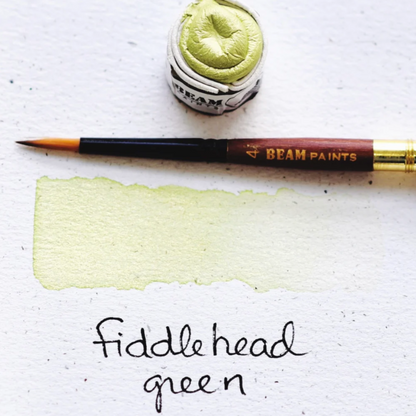 BEAM
4 BEAM PAINTS
fiddlehead
green